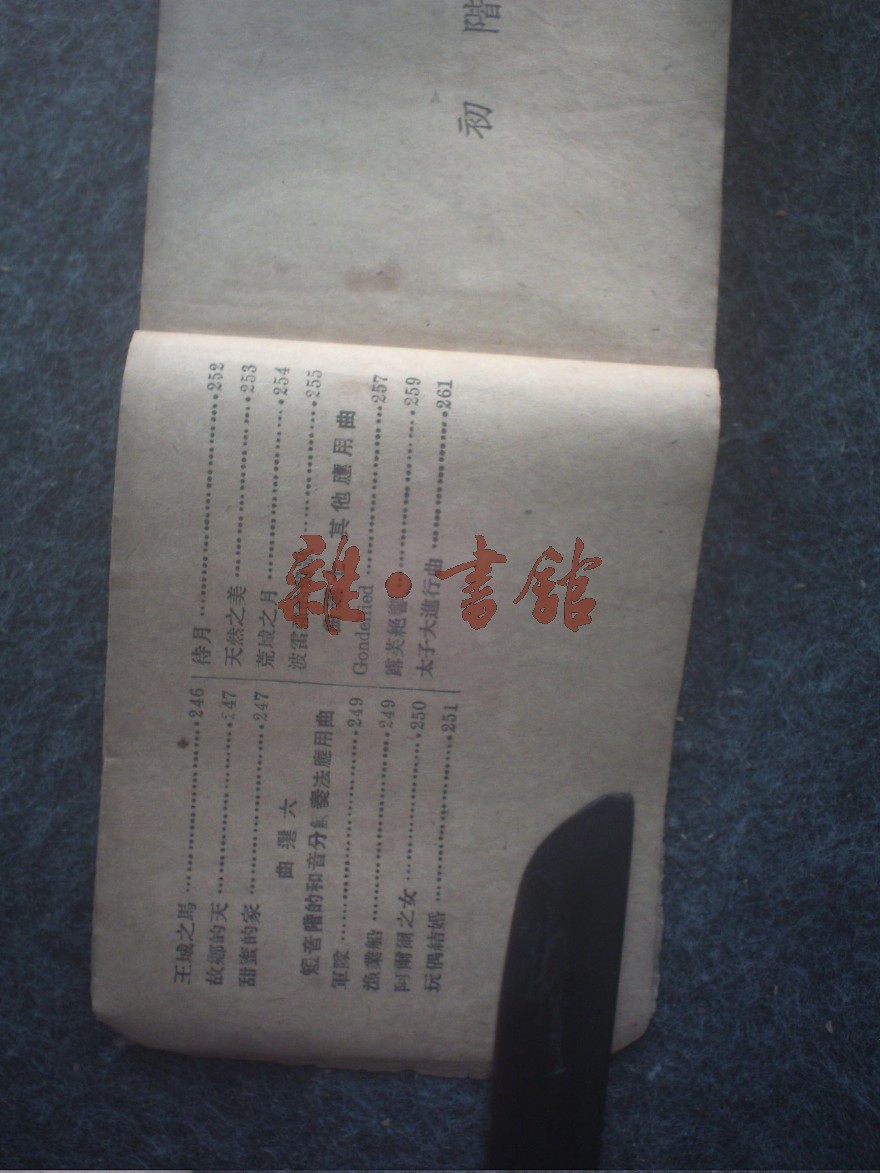 王城之馬 …………………246
故鄉的天 …………………247
甜蜜的家 …………………247
曲選六
短音階的和音分解奏法應用曲
軍隊 …………………249
漁業船 …………………249
阿爾爾之女 …………………250
玩偶結婚 …………………251
待月 …………………252
天然之美 …………………253
荒城之月 …………………254
波雷 …………………255
其他應用曲
Gondellied …………………257
…………………259
太子大進行曲 …………………261
初階
書館